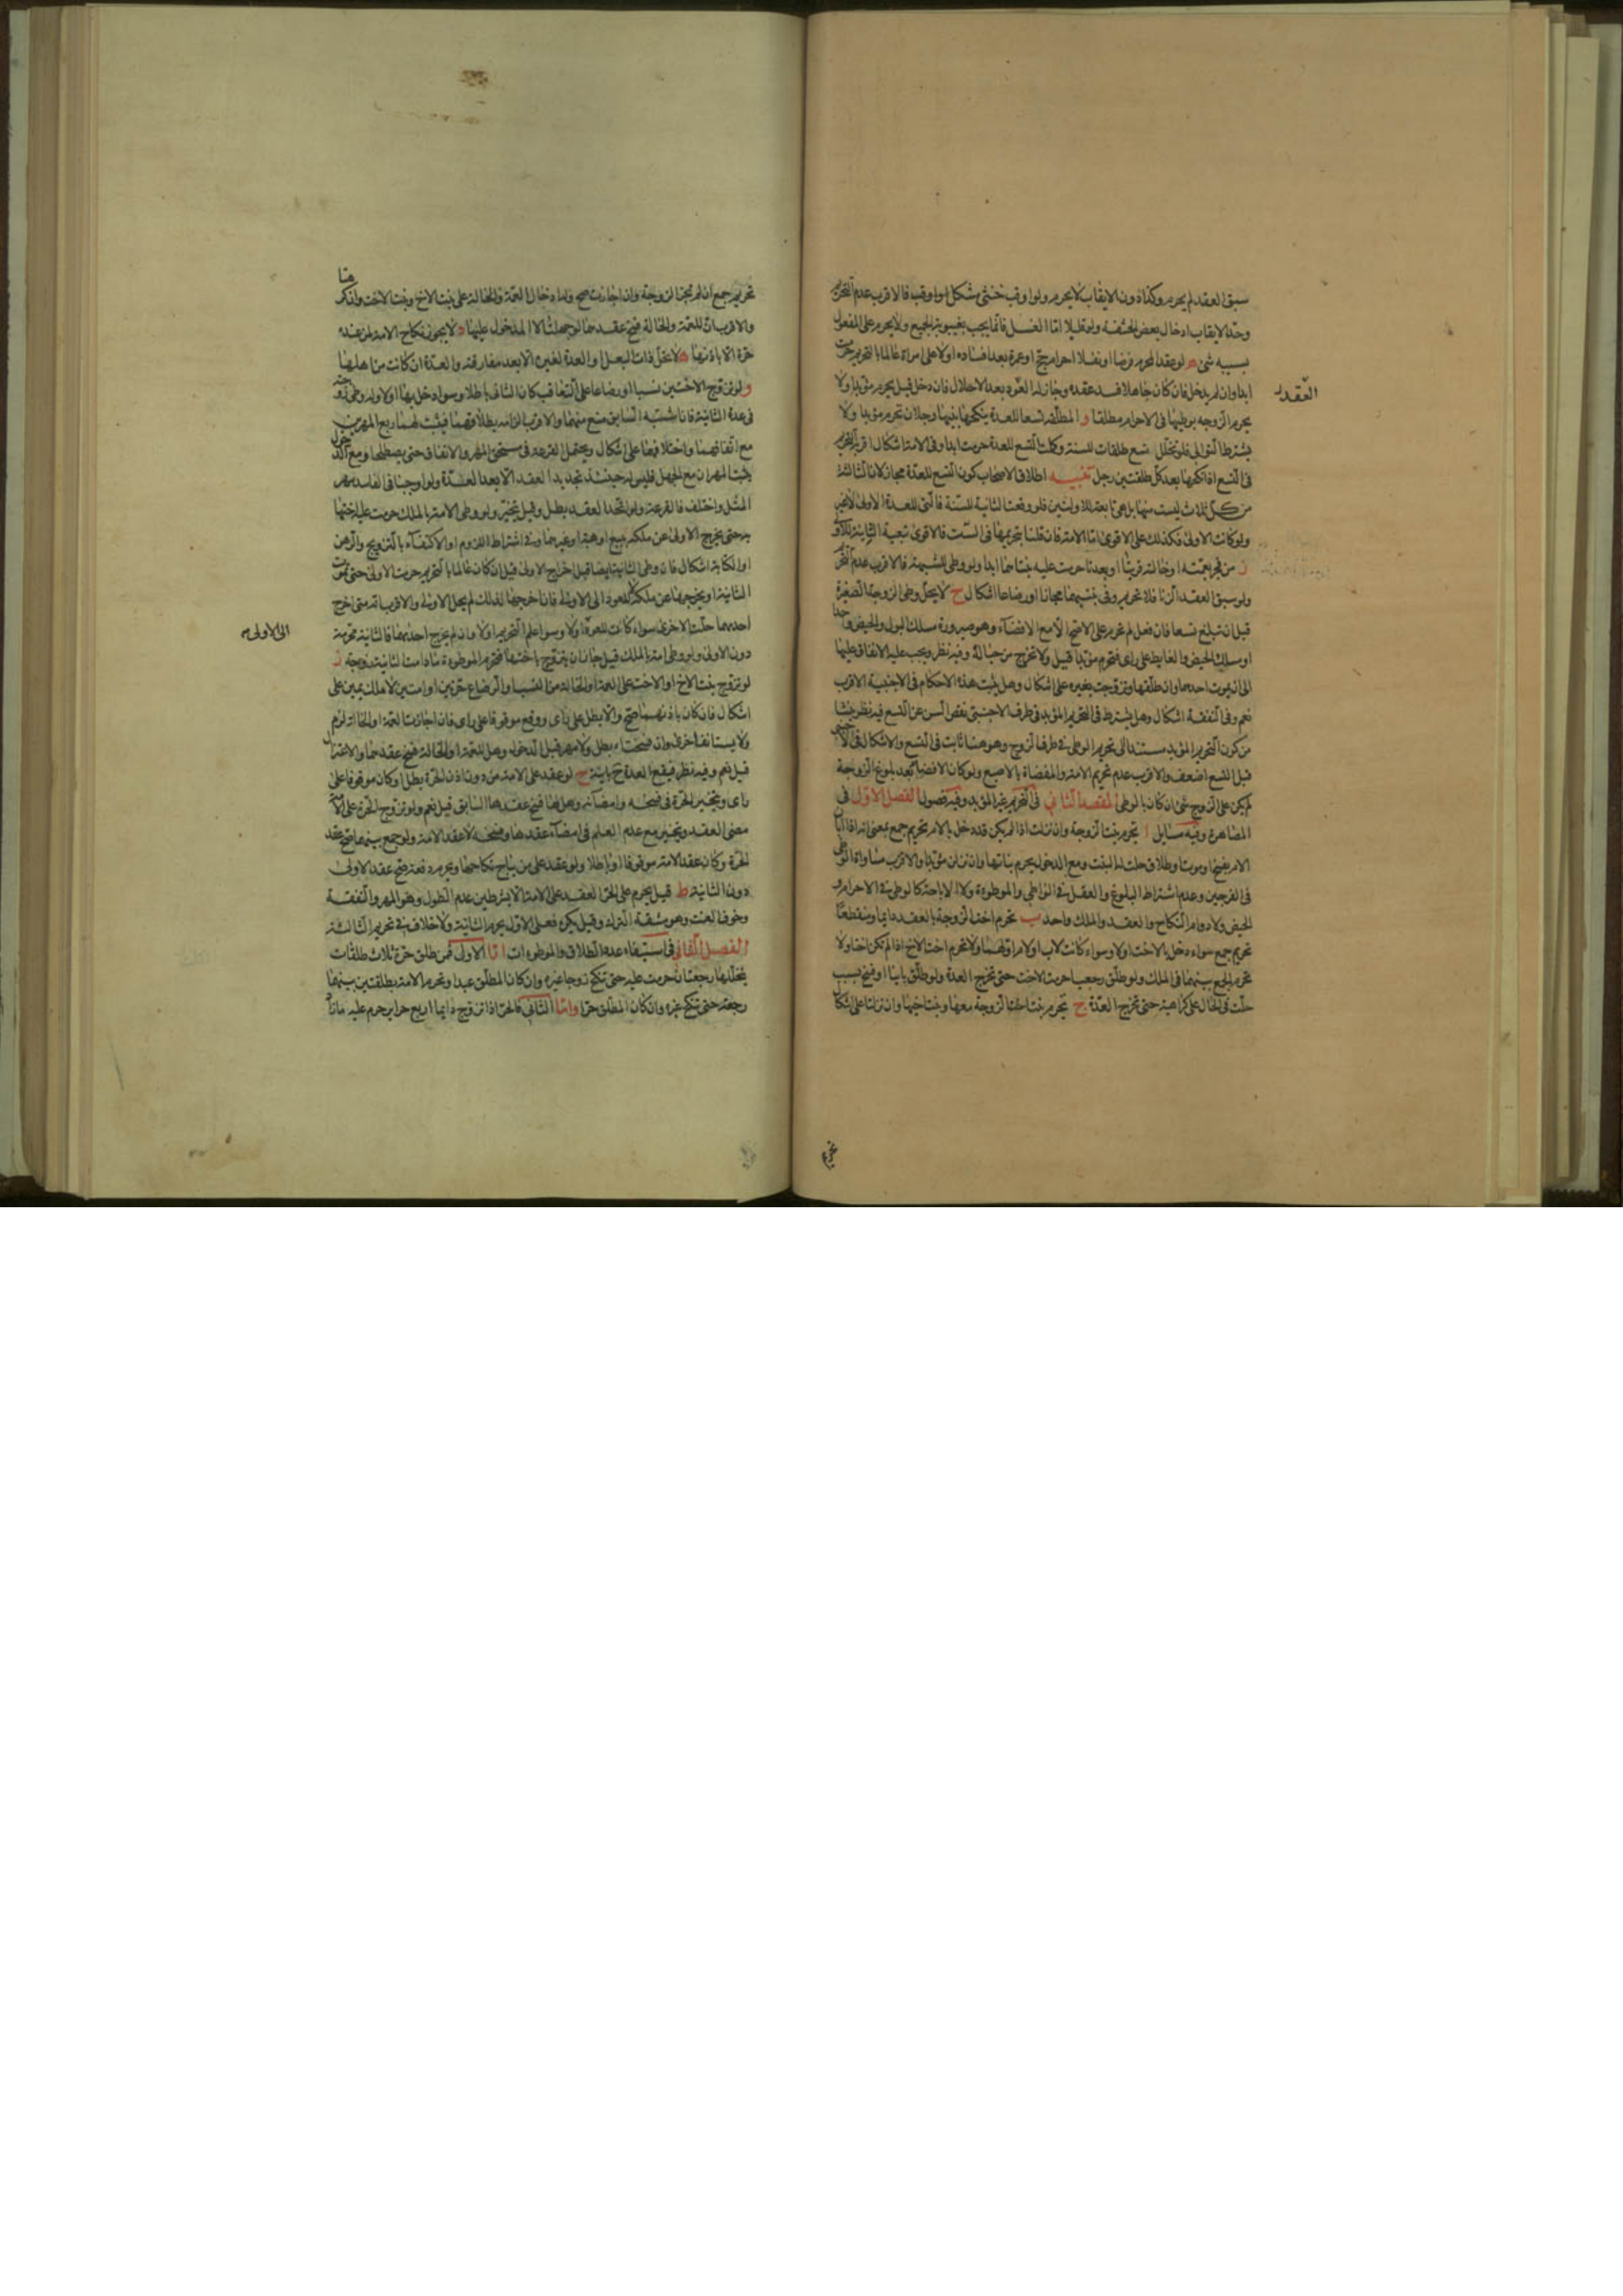 سبق العقد لم يحرم وكذا دون الايقاب لا يحرم ولو اوقب خنثى مشكل او اوقب فالاقرب عدم التحريم
وحد الايقاب ادخال بعض الحشفة ولو قليلا اما الغسل فانما يجب بغيبوبة الجميع ولا يحرم على المفعول
بسببه شئ ه لو عقد المحرم فرضا او نفلا احرام حج او عمرة بعد افساده او لا على امراة عالما بالتحريم حرمت
ابدا وان لم يدخل فان كان جاهلا فسد عقده وجاز له العود بعد الاحلال فان دخل قيل يحرم مؤبدا ولا
العقد
يحرم الزوجه بوطيها في الاحرام مطلقا و المطلقه تسعا للعدة ينكحها بينها رجلان تحرم مؤبدا ولا
يشترط التوالي فلو تخلل تسع طلقات للسنة وكملت التسع للعدة حرمت ابدا وفي الامة اشكال اقربه التحريم
في التسع اذا نكحها بعد كل طلقتين رجل تنبيه اطلاق الاصحاب كون التسع للعدة مجاز لان الثالثة
من كل ثلاث ليست منها بل هي تابعة للاوليين فلو وقعت الثانية للسنة فالتي للعدة الاولى لا غير
ولو كانت الاولى فكذلك على الاقوى اما الامة فان قلنا بتحريمها في الست فالاقوى تبعية الثانية للاولى
ز من فجر بعمته او خالته قريبا او بعدتا حرمت عليه بنتاهما ابدا ولو وطى للشبهة فالاقرب عدم التحريم
ولو سبق العقد الزنا فلا تحريم وفي بنتيهما مجازا او رضاعا اشكال ح لا يحل وطى الزوجة الصغيرة
قبل ان تبلغ تسعا فان فعل لم تحرم على الاصح الا مع الافضاء وهو صيرورة مسلك البول والحيض واحدا
او مسلك الحيض والغايط على راى فتحرم مؤبدا قيل ولا تخرج من حباله وفيه نظر ويجب عليه الانفاق عليها
الى ان يموت احدهما وان طلقها وتزوجت بغيره على اشكال وهل يثبت هذه الاحكام في الاجنبية الاقرب
نعم وفي النفقة اشكال وهل يشترط في التحريم المؤبد في طرف الاجنبي نقص السن عن التسع فيه نظر ينشا
من كون التحريم المؤبد مستندا الى تحريم الوطى في طرف الزوج وهو هنا ثابت في التسع والاشكال في الاجنبي
قبل التسع اضعف والاقرب عدم تحريم الامة والمفضاة بالاصبع ولو كان الافضاء بعد بلوغ الزوجة
لم يكن على الزوج شئ ان كان بالوطى المقصد الثاني في التحريم غير المؤبد وفيه فصول الفصل الاول في
المصاهرة وفيه مسايل ا تحرم بنت الزوجة وان نزلت اذا لم يكن قد دخل بالام تحريم جمع بمعنى انه اذا ابان
الام بفسخ او موت او طلاق حلت له البنت ومع الدخول يحرم بناتها وان نزلن مؤبدا والاقرب مساواة الوطى
في الفرجين وعدم اشتراط البلوغ والعقل في الواطي والموطوءة ولا الاباحة كالوطى في الاحرام و
الحيض ولا دوام النكاح والعقد والملك واحد ب تحرم اخت الزوجة بالعقد دايما ومنقطعا
تحريم جمع سواء دخل بالاخت او لا وسواء كانت لاب او لام او لهما ولا تحرم اخت الاخ اذا لم تكن اختا ولا
تحرم الجمع بينهما في الملك ولو طلق رجعيا حرمت الاخت حتى تخرج العدة ولو طلق باينا او فسخ بسبب
حلت في الحال على كراهية حتى تخرج العدة ج تحرم بنت اخت الزوجة معها وبنت اخيها وان نزلتا على اشكال
تحريم
تحريم جمع ان لم تجز الزوجة وان اجازت صح وله ادخال العمة والخالة على بنت الاخ وبنت الاخت وان كرهتا
والاقرب ان للعمة والخالة فسخ عقدهما لو جهلتا لا المدخول عليها د لا يجوز نكاح الامة لمن عنده
حرة الا باذنها ه لا تحل ذات البعل او العدة لغيره الا بعد مفارقته والعدة ان كانت من اهلها
و لو تزوج الاختين نسبا او رضاعا على التعاقب كان الثاني باطلا وسواء دخل بها او لا وله وطى زوجته
في عدة الثانية فان اشتبه السابق منع منهما والاقرب الزامه بطلاقهما فيثبت لهما ربع المهرين
مع اتفاقهما واختلافهما على اشكال ويحتمل القرعة في مستحق المهر والانفاق حتى يصطلحا ومع الدخول
يثبت المهران مع الجهل فليس له حينئذ تجديد العقد الا بعد العدة ولو اوجبنا في الفاسد مهر
المثل واختلف فالقرعة ولو اتحد العقد بطل وقيل يتخير ولو وطى الامة بالملك حرمت عليه اختها
به حتى يخرج الاولى عن ملكه ببيع او هبة او غيرهما وفي اشتراط اللزوم او الاكتفاء بالتزويج والرهن
او الكتابة اشكال فان وطى الثانية ايضا قبل اخراج الاولى قيل ان كان عالما بالتحريم حرمت الاولى حتى تموت
الثانية او يخرجها عن ملكه لا للعود الى الاولى فان اخرجها لذلك لم يحل الاولى والاقرب انه متى اخرج
احدهما حلت الاخرى سواء كانت للعود او لا وسواء علم التحريم او لا وان لم يخرج احدهما فالثانية محرمة
الى الاولى صح
دون الاولى ولو وطى امة بالملك قيل جاز ان يتزوج باختها فتحرم الموطوءة ما دامت الثانية زوجة ز
لو تزوج بنت الاخ او الاخت على العمة او الخالة من النسب او الرضاع حرتين او امتين لا ملك يمين على
اشكال فان كان باذنهما صح والا بطل على راى ووقع موقوفا على راى فان اجازت العمة او الخالة لزم
ولا يستانف اخرى وان فسختاه بطل ولا مهر قبل الدخول وهل للعمة او الخالة فسخ عقدهما والاعتزال
قيل نعم وفيه نظر فيقع العدة ح باينة ح لو عقد على الامة من دون اذن الحرة بطل او كان موقوفا على
راى ويتخير الحرة في فسخه وامضائه وهل لها فسخ عقدها السابق قيل نعم ولو تزوج الحرة على الامة
مضى العقد ويتخير مع عدم العلم في امضاء عقدها وفسخه لا عقد الامة ولو جمع بينهما صح عقد
الحرة وكان عقد الامة موقوفا او باطلا ولو عقد على من يباح نكاحها ويحرم دفعة صح عقد الاولى
دون الثانية ط قيل يحرم على الحر العقد على الامة الا بشرطين عدم الطول وهو المهر والنفقة
وخوف العنت وهو مشقة الترك وقيل يكره فعلى الاول يحرم الثانية ولا خلاف في تحريم الثالثة
الفصل الثاني في استيفاء عدد الطلاق والموطوءات اما الاولى فمن طلق حرة ثلاث طلقات
يتخللها رجعتان حرمت عليه حتى تنكح زوجا غيره وان كان المطلق عبدا وتحرم الامة بطلقتين بينهما
رجعة حتى تنكح غيره وان كان المطلق حرا واما الثاني فالحر اذا تزوج دايما اربع حراير حرم عليه ما زاد